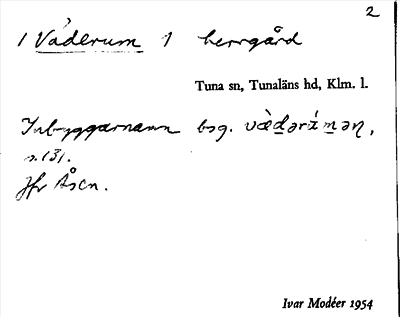 2
1 Våderum 1 herrgård
Tuna sn, Tunaläns hd, Klm. l.
Inbyggarnamn bsg. væ̀dərɪ́mən,
s. 131.
Jfr Åsen.
Ivar Modéer 1954